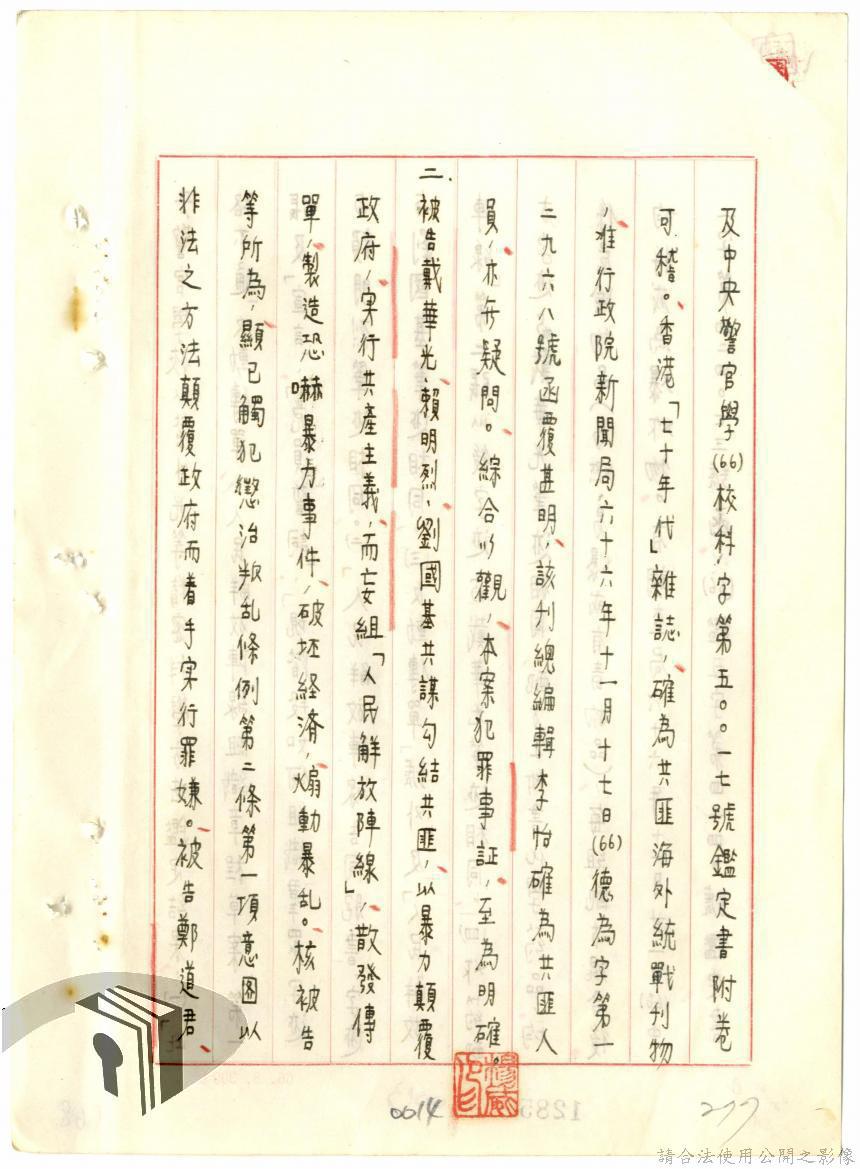 及中央警官學(66)校科字第五〇〇一七號鑑定書附卷
可稽。香港「七十年代」雜誌，確為共匪海外統戰刊物
，准行政院新聞局六十六年十一月十七日(66)德為字第一
三九六八號函覆甚明，該刊總編輯李怡確為共匪人
員，亦无疑問。綜合以觀，本案犯罪事証，至為明確。
二、被告戴華光、賴明烈、劉國基共謀勾結共匪，以暴力顛覆
政府，实行共產主義，而妄組「人民解放陣線」，散發傳
單，製造恐嚇暴力事件，破坯経済，煽動暴乱。核被告
等所為，顯已觸犯懲治叛乱條例第二條第一項意图以
非法之方法顛覆政府而着手实行罪嫌。被告鄭道君、
0014
277
請合法使用公開之影像